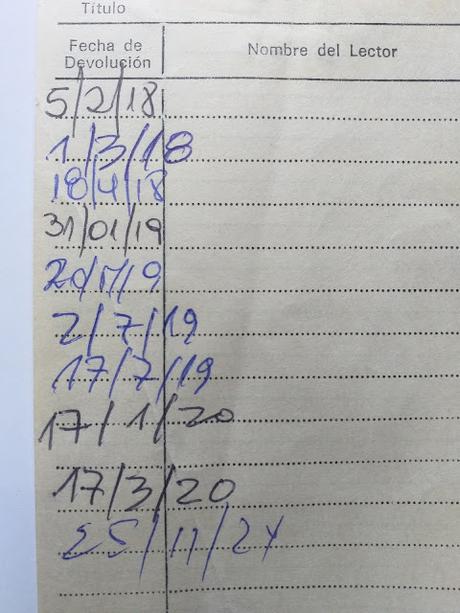 Título
Fecha de Nombre del Lector
Devolución
5/2/18
1/3/18
18/4/18
31/01/19
2/7/19
17/7/19
17/1/20
17/3/20
25/11/24